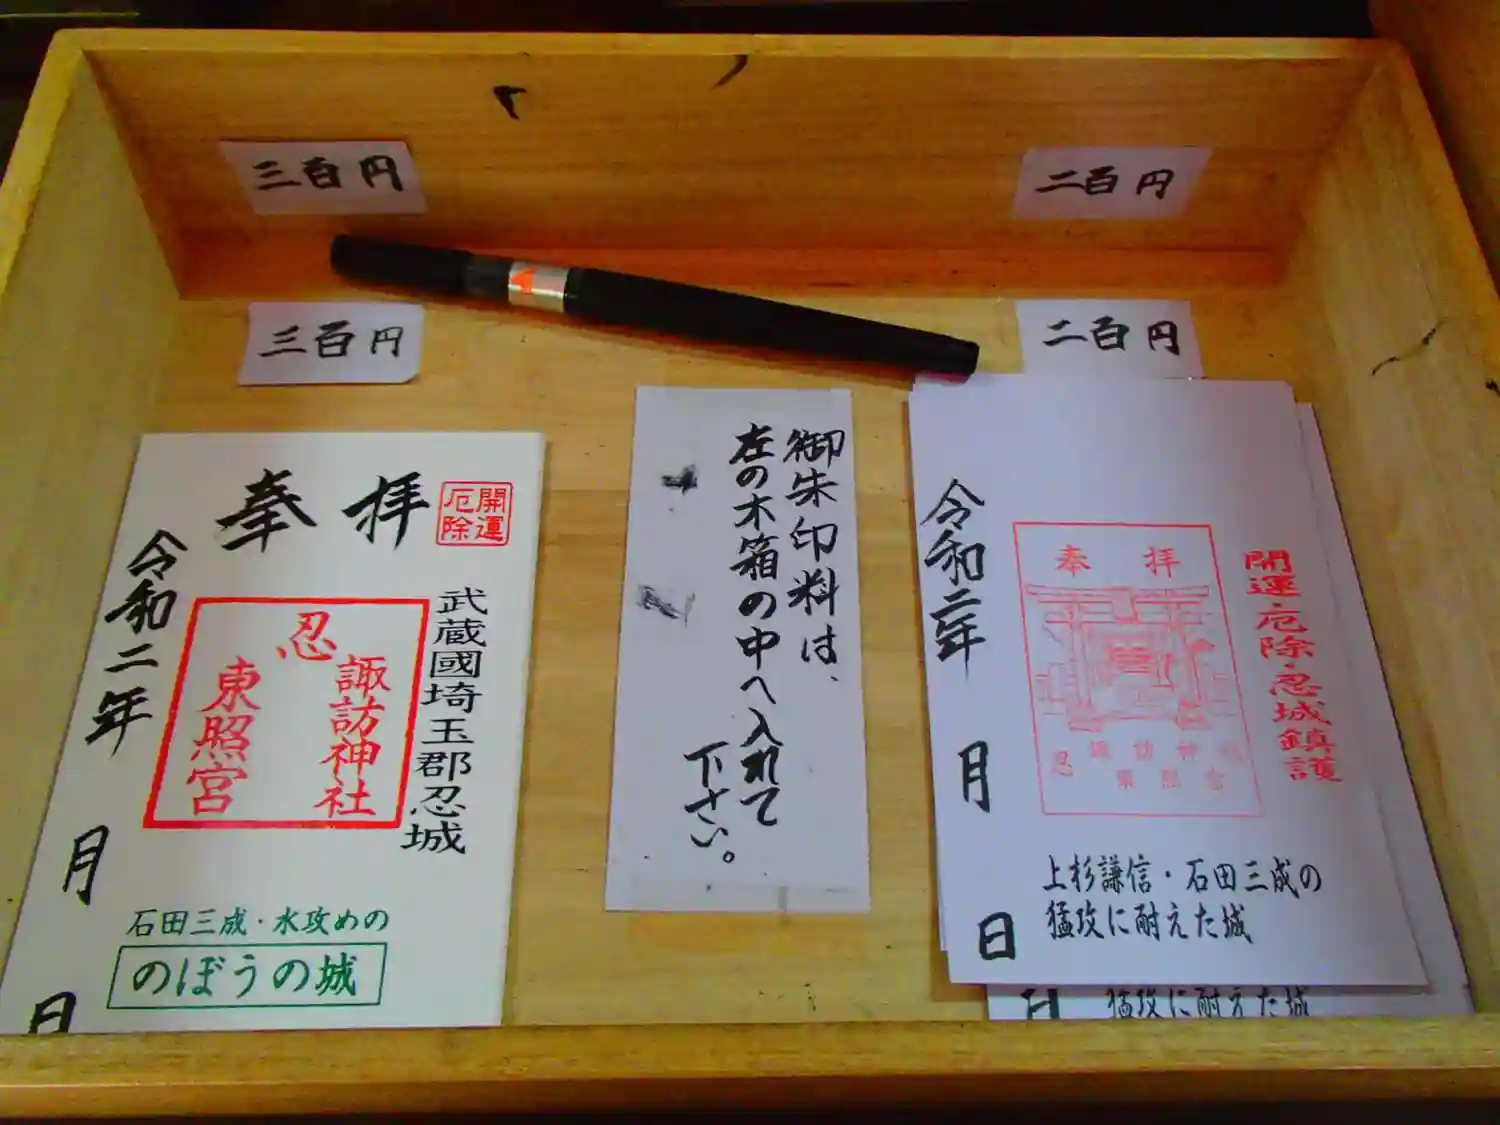 三百円
二百円
三百円
二百円
奉拝
開運
厄除
武蔵國埼玉郡忍城
忍
諏訪神社
東照宮
令和二年
月
日
石田三成・水攻めの
のぼうの城
御朱印料は、
左の木箱の中へ入れて
下さい。
開運厄除・忍城鎮護
奉拝
忍
諏訪神社
東照宮
令和二年
月
日
上杉謙信・石田三成の
猛攻に耐えた城
日
猛攻に耐えた城